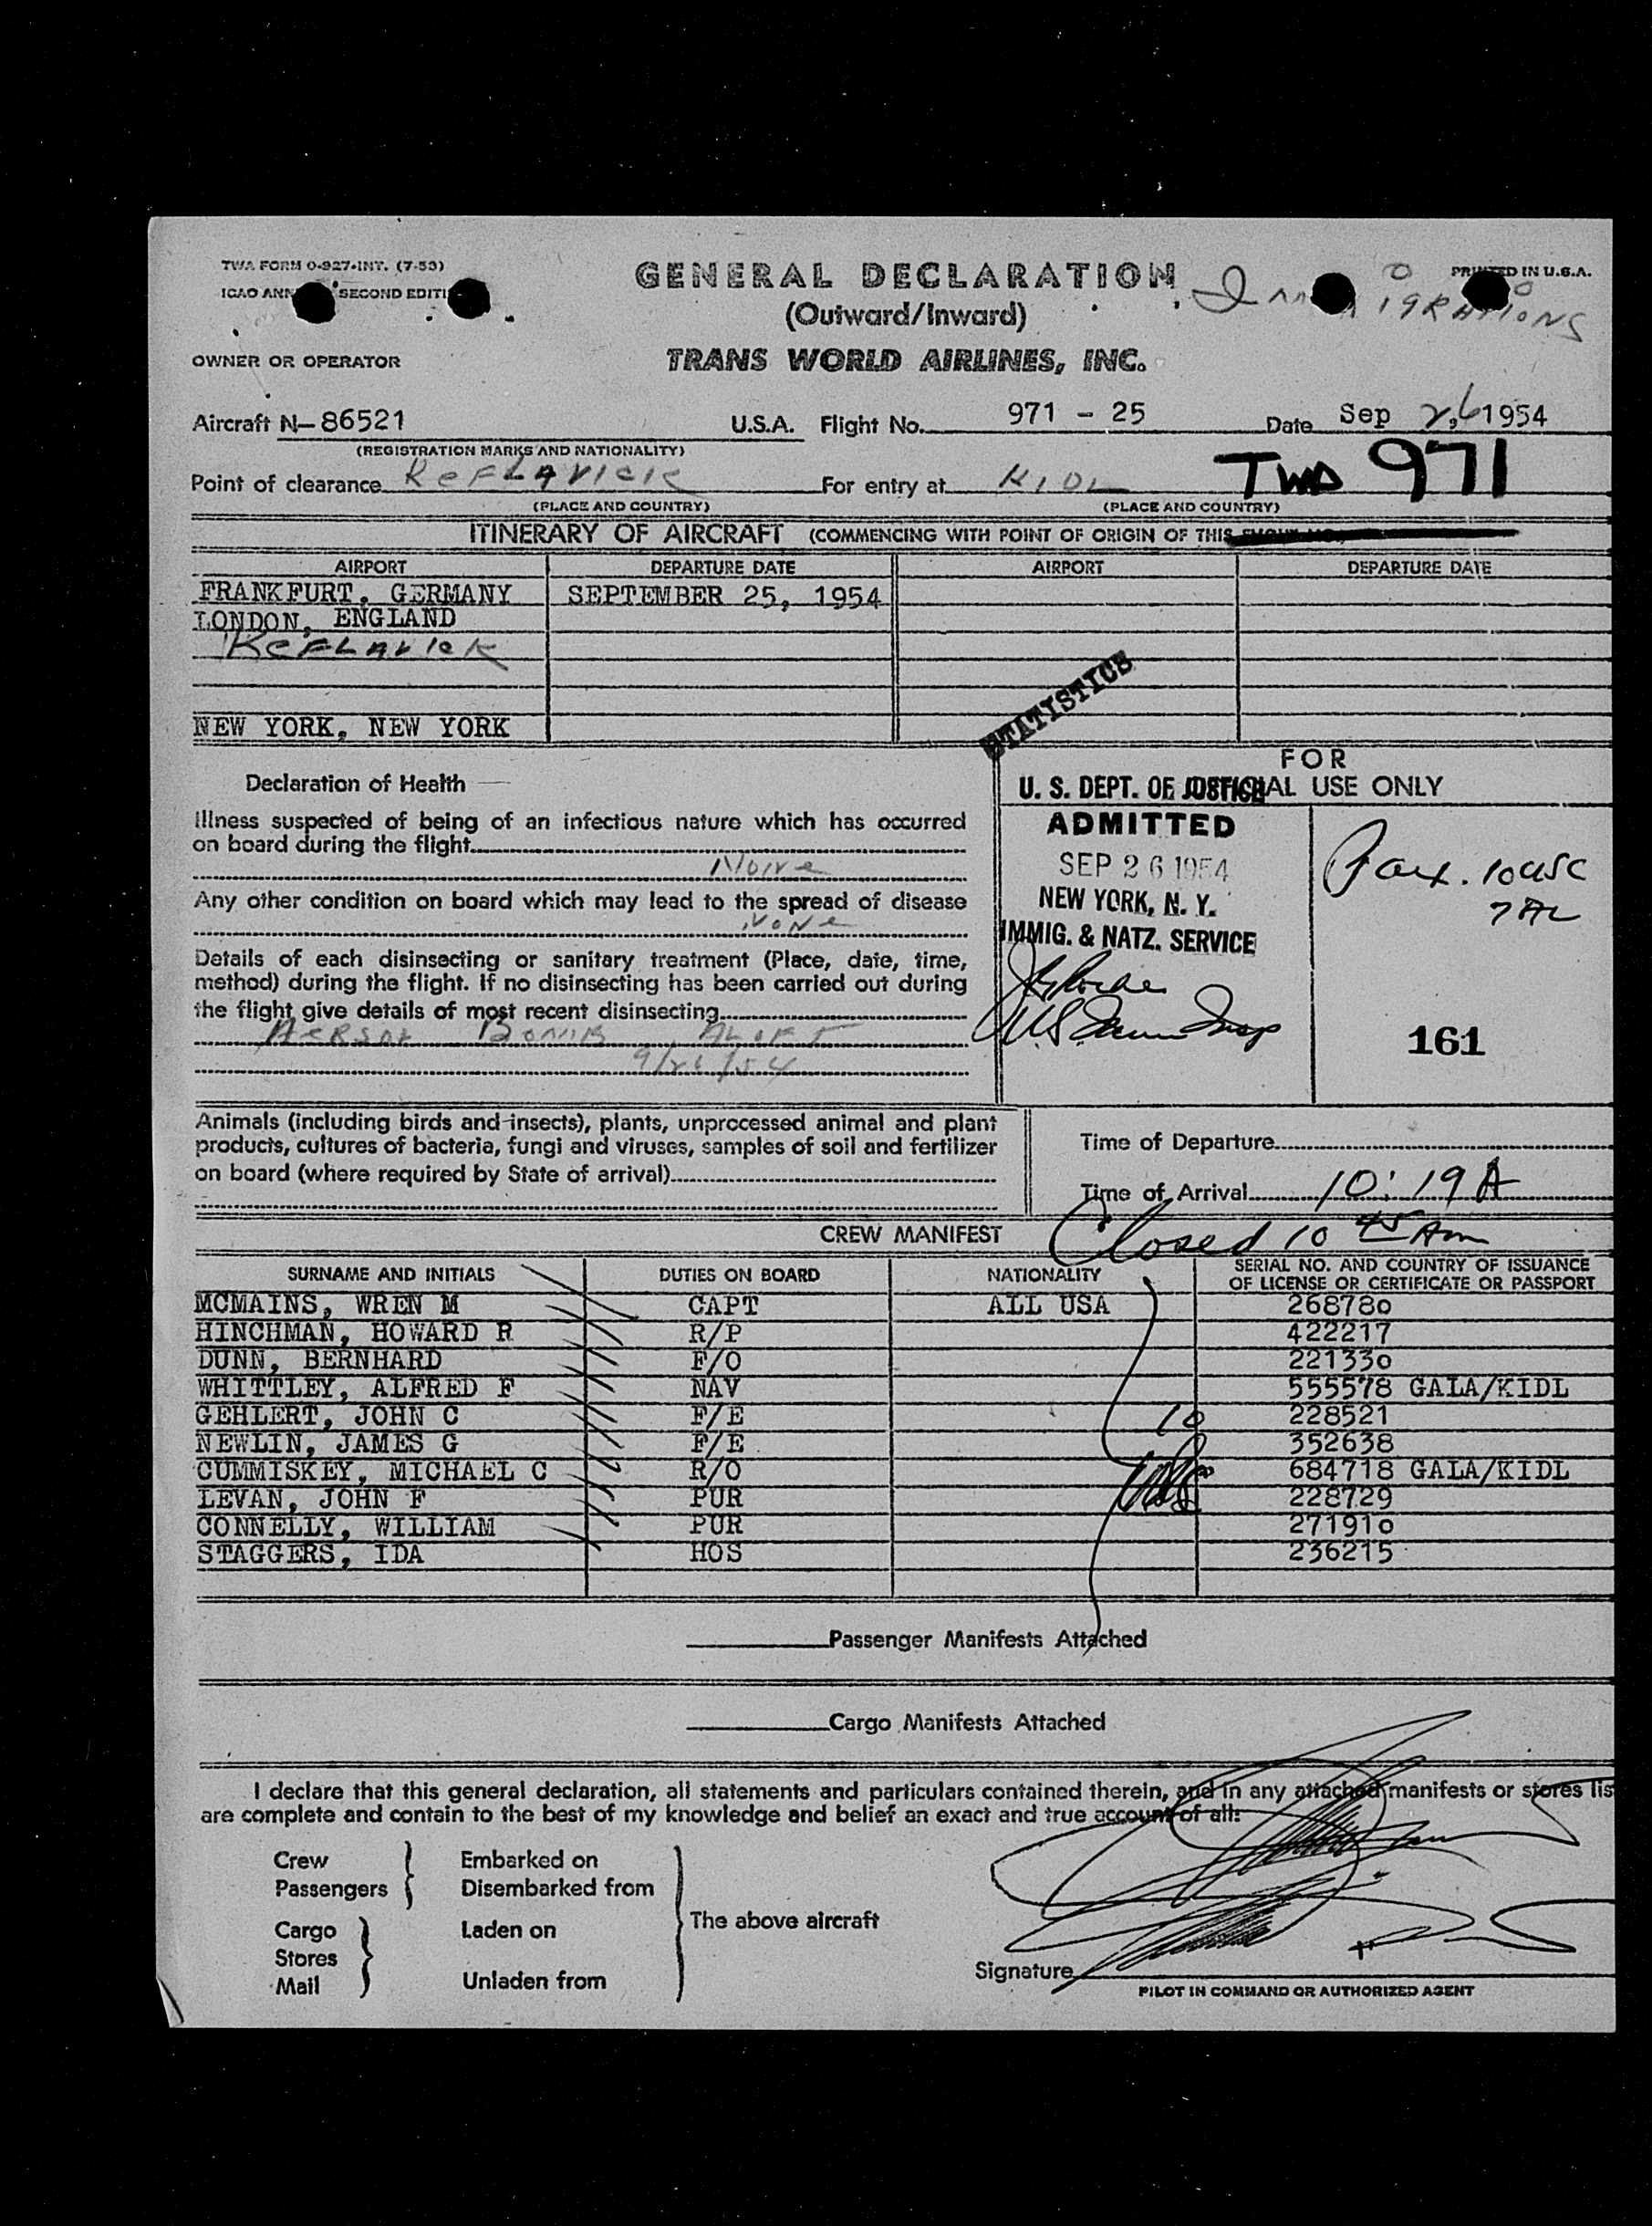 TWA FORM O-927-INT. (7-53)
GENERAL DECLARATION
PRINTED IN U.S.A.
ICAO ANN SECOND EDITI
(Outward/Inward)
OWNER OR OPERATOR
TRANS WORLD AIRLINES, INC.
Aircraft N-86521 U.S.A. Flight No. 971 - 25 Date Sep 26 1954
(REGISTRATION MARKS AND NATIONALITY)
TWA 971
Point of clearance KeFLAVICK For entry at KIDL
(PLACE AND COUNTRY) (PLACE AND COUNTRY)
ITINERARY OF AIRCRAFT (COMMENCING WITH POINT OF ORIGIN OF THIS
AIRPORT DEPARTURE DATE AIRPORT DEPARTURE DATE
FRANKFURT, GERMANY SEPTEMBER 25, 1954
LONDON, ENGLAND
KeFLAVICK
STATISTICS
NEW YORK, NEW YORK
FOR
OFFICIAL USE ONLY
U. S. DEPT. OF JUSTICE
ADMITTED
SEP 26 1954
NEW YORK, N. Y.
IMMIG. & NATZ. SERVICE
161
Declaration of Health
Illness suspected of being of an infectious nature which has occurred
on board during the flight
None
Any other condition on board which may lead to the spread of disease
None
Details of each disinsecting or sanitary treatment (Place, date, time,
method) during the flight. If no disinsecting has been carried out during
the flight give details of most recent disinsecting
AERSOL BOMB ALOFT
9/26/54
Animals (including birds and insects), plants, unprocessed animal and plant
products, cultures of bacteria, fungi and viruses, samples of soil and fertilizer
on board (where required by State of arrival)
Time of Departure
Time of Arrival 10:19 A
Closed 10 45 Am
CREW MANIFEST
SURNAME AND INITIALS DUTIES ON BOARD NATIONALITY SERIAL NO. AND COUNTRY OF ISSUANCE
OF LICENSE OR CERTIFICATE OR PASSPORT
MCMAINS, WREN M CAPT ALL USA 268780
HINCHMAN, HOWARD R R/P 422217
DUNN, BERNHARD F/O 221330
WHITTLEY, ALFRED F NAV 555578 GALA/KIDL
GEHLERT, JOHN C F/E 10 228521
NEWLIN, JAMES G F/E 352638
CUMMISKEY, MICHAEL C R/O 684718 GALA/KIDL
LEVAN, JOHN F PUR 228729
CONNELLY, WILLIAM PUR 271910
STAGGERS, IDA HOS 236215
Passenger Manifests Attached
Cargo Manifests Attached
I declare that this general declaration, all statements and particulars contained therein, and in any attached manifests or stores lis
are complete and contain to the best of my knowledge and belief an exact and true account of all:
Crew Embarked on
Passengers Disembarked from
The above aircraft
Cargo Laden on
Stores
Mail Unladen from
Signature
PILOT IN COMMAND OR AUTHORIZED AGENT